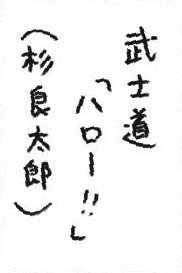 武士道
「ハロー!!」
(杉良太郎)